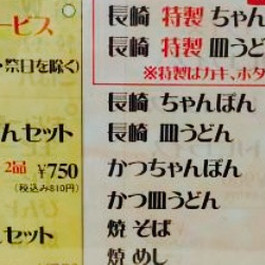 ービス
・祭日を除く)
んセット
2品 ¥750
(税込み810円)
セット
長崎 特製 ちゃん
長崎 特製 皿うど
※特製はカキ、ホタ
長崎 ちゃんぽん
長崎 皿うどん
かつちゃんぽん
かつ皿うどん
焼 そば
焼 めし